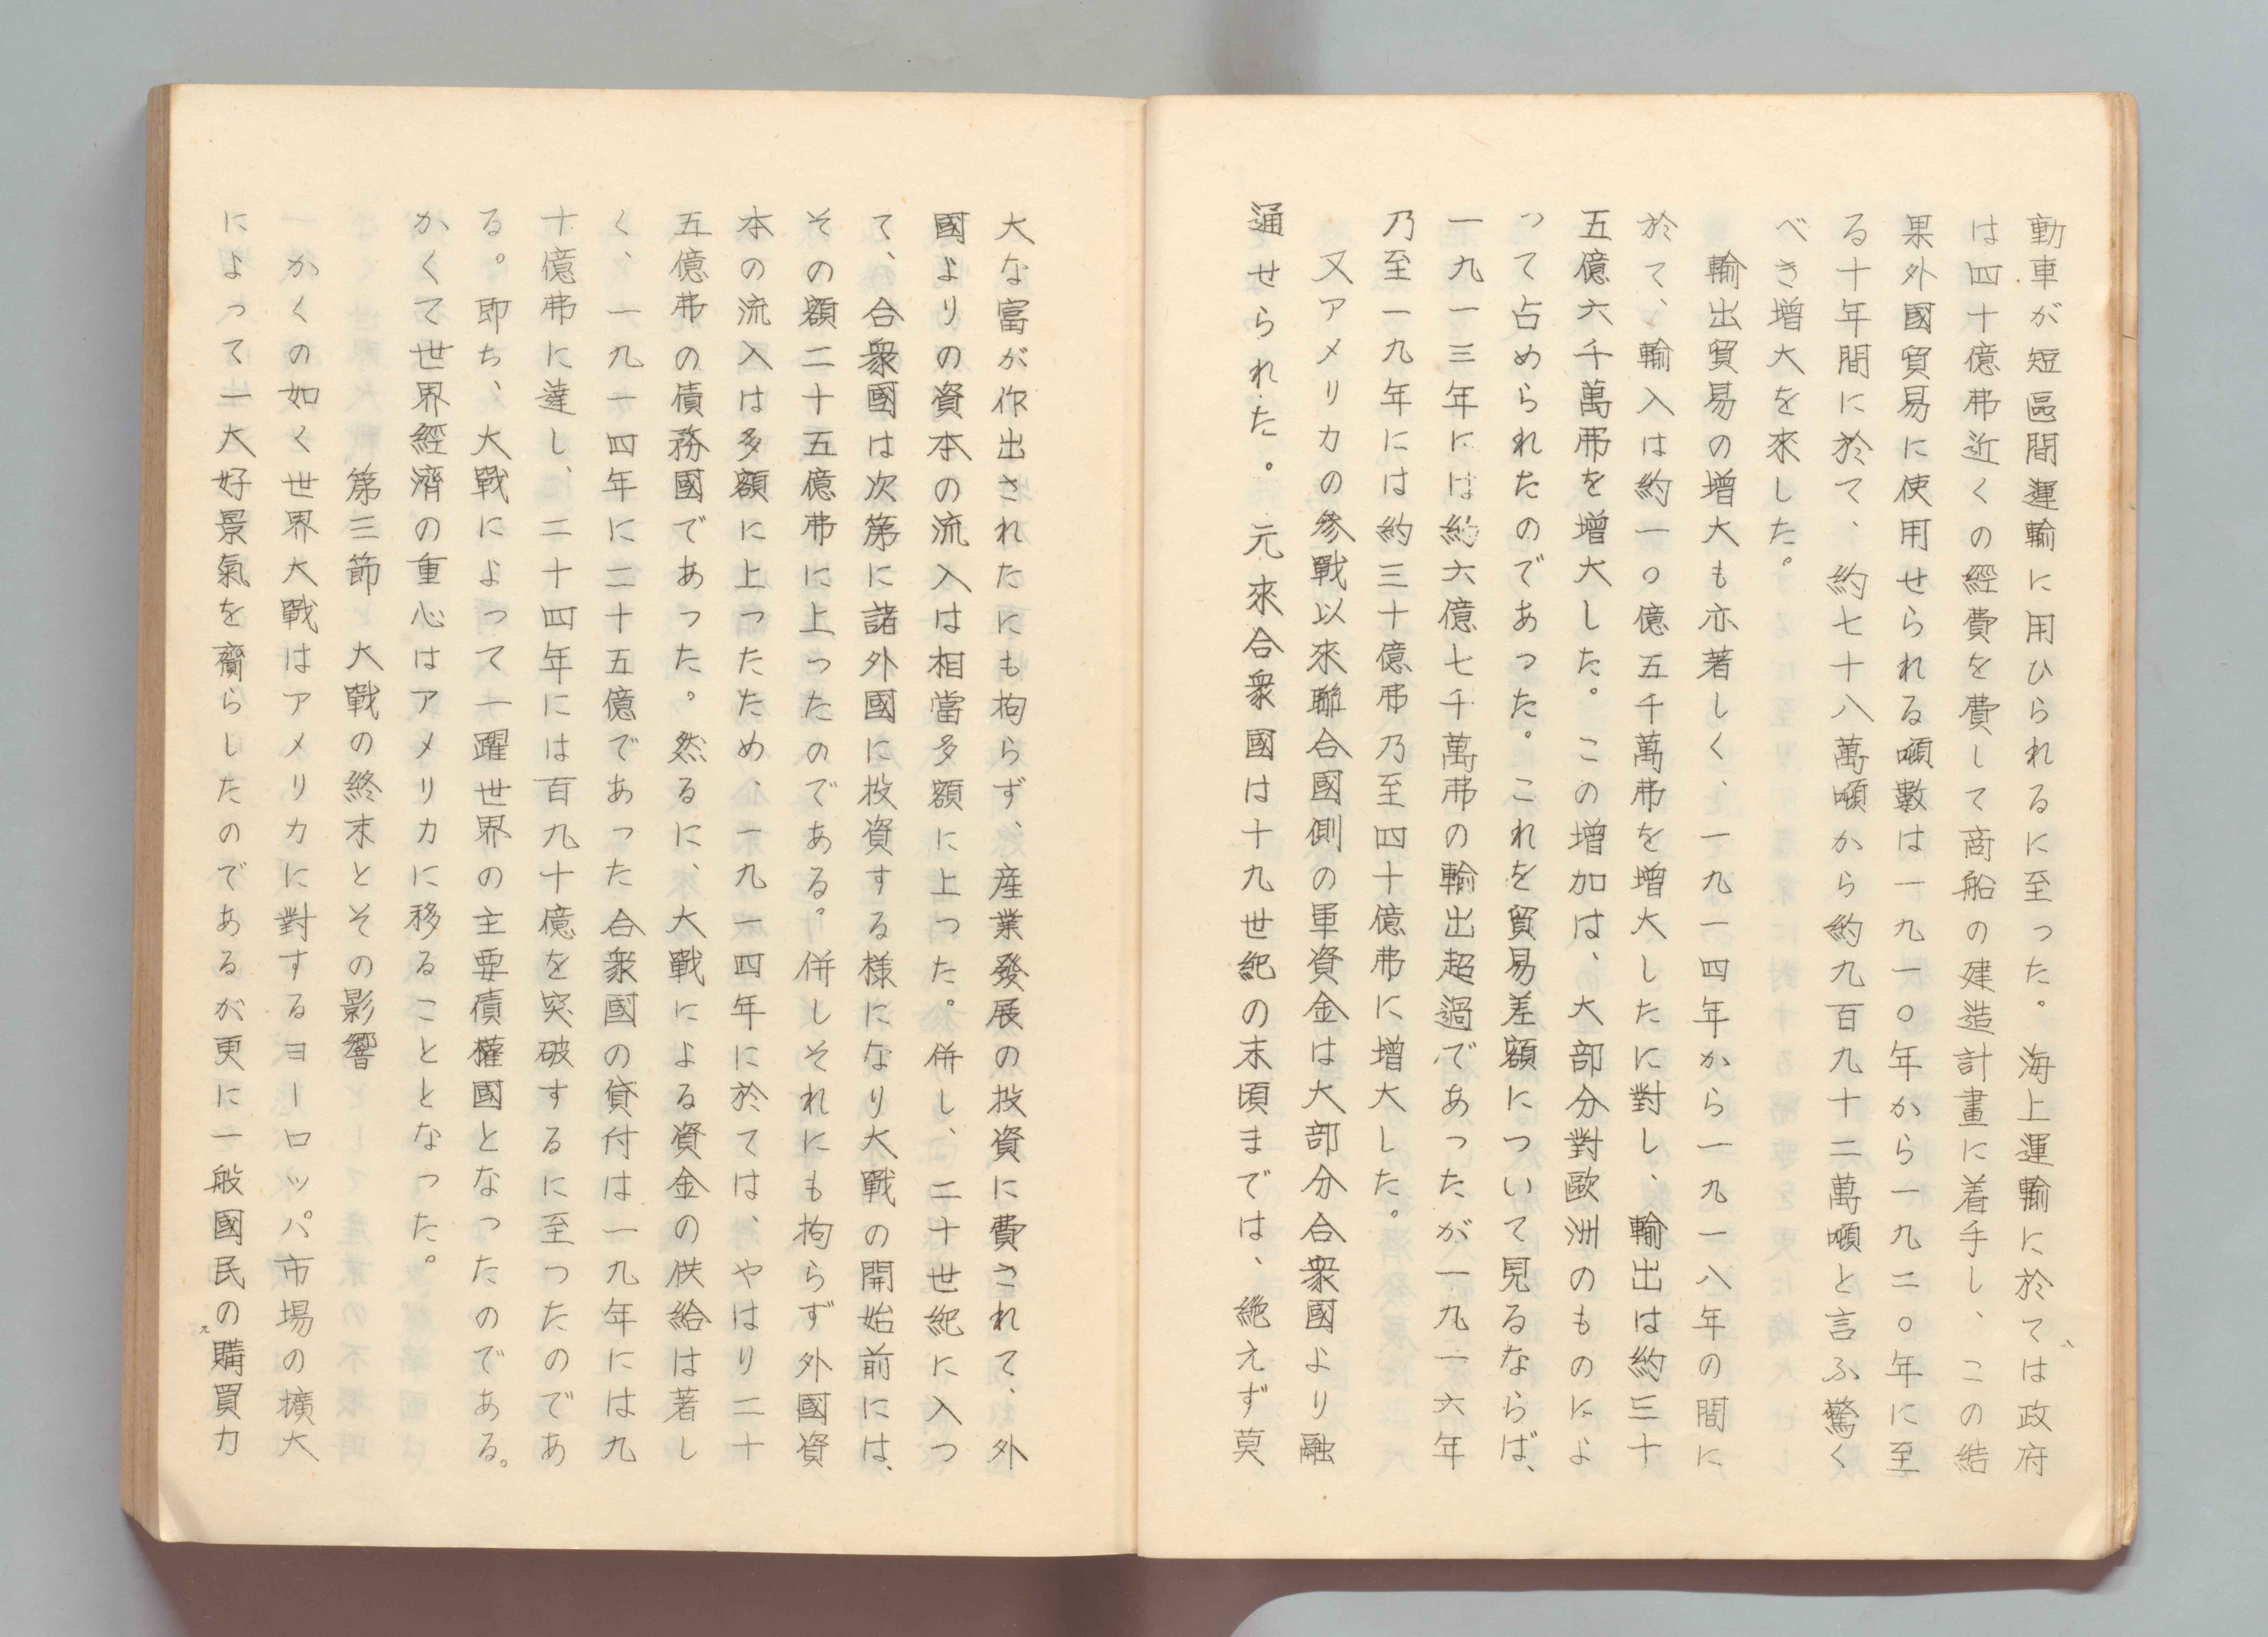 動車が短區間運輸に用ひられるに至った。海上運輸に於ては政府
は四十億弗近くの經費を費して商船の建造計畫に着手し、この結
果外國貿易に使用せられる噸數は一九一〇年から一九二〇年に至
る十年間に於て、約七十八萬噸から約九百九十二萬噸と言ふ驚く
べき増大を來した。
輸出貿易の増大も亦著しく、一九一四年から一九一八年の間に
於て、輸入は約一〇億五千萬弗を増大したに對し、輸出は約三十
五億六千萬弗を増大した。この増加は、大部分對歐洲のものによ
って占められたのであった。これを貿易差額について見るならば、
一九一三年には約六億七千萬弗の輸出超過であったが一九一六年
乃至一九年には約三十億弗乃至四十億弗に増大した。
又アメリカの參戰以來聯合國側の軍資金は大部分合衆國より融
通せられた。元來合衆國は十九世紀の末頃までは、絶えず莫
大な富が作出されたにも拘らず、産業發展の投資に費されて、外
國よりの資本の流入は相當多額に上つた。併し、二十世紀に入つ
て、合衆國は次第に諸外國に投資する様になり大戰の開始前には、
その額二十五億弗に上ったのである。併しそれにも拘らず外國資
本の流入は多額に上ったため、一九一四年に於ては、やはり二十
五億弗の債務國であった。然るに、大戰による資金の供給は著し
く、一九一四年に二十五億であった合衆國の貸付は一九年には九
十億弗に達し、二十四年には百九十億を突破するに至ったのであ
る。即ち、大戰によって一躍世界の主要債權國となったのである。
かくて世界經濟の重心はアメリカに移ることとなった。
第三節　大戰の終末とその影響
かくの如く世界大戰はアメリカに對するヨーロッパ市場の擴大
によって一大好景氣を齎らしたのであるが更に一般國民の購買力